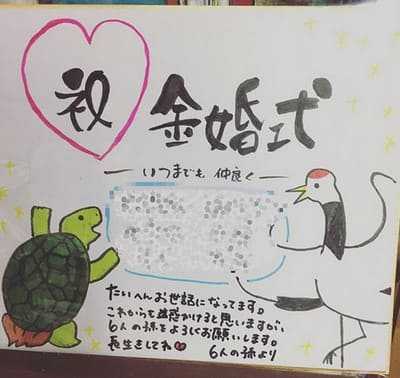 祝 金婚式
いつまでも 仲良く
たいへんお世話になってます。
これからも迷惑かけると思いますが、
6人の孫をよろしくお願いします。
長生きしてね
6人の孫より